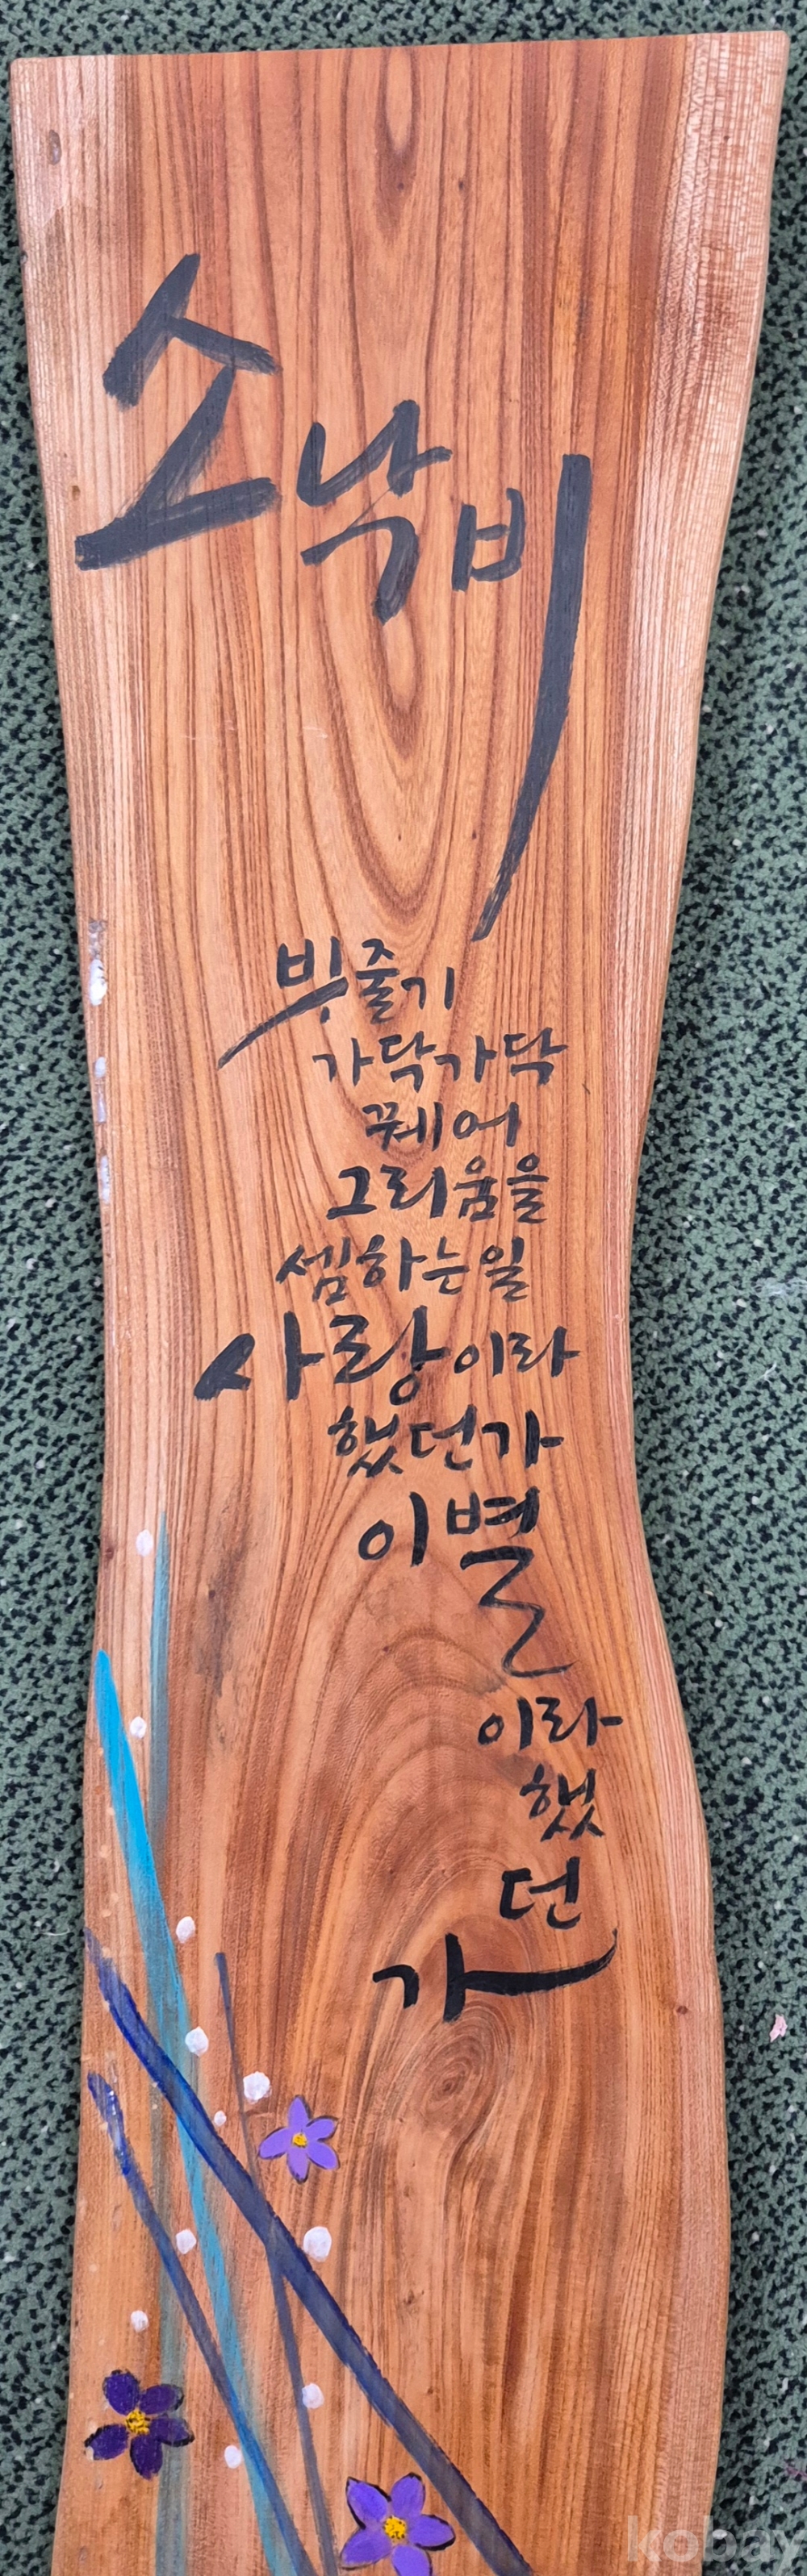 소낙비
빗줄기
가닥가닥
꿰어
그리움을
셈하는일
사랑이라
했던가
이별
이라
했
던
가
kobay